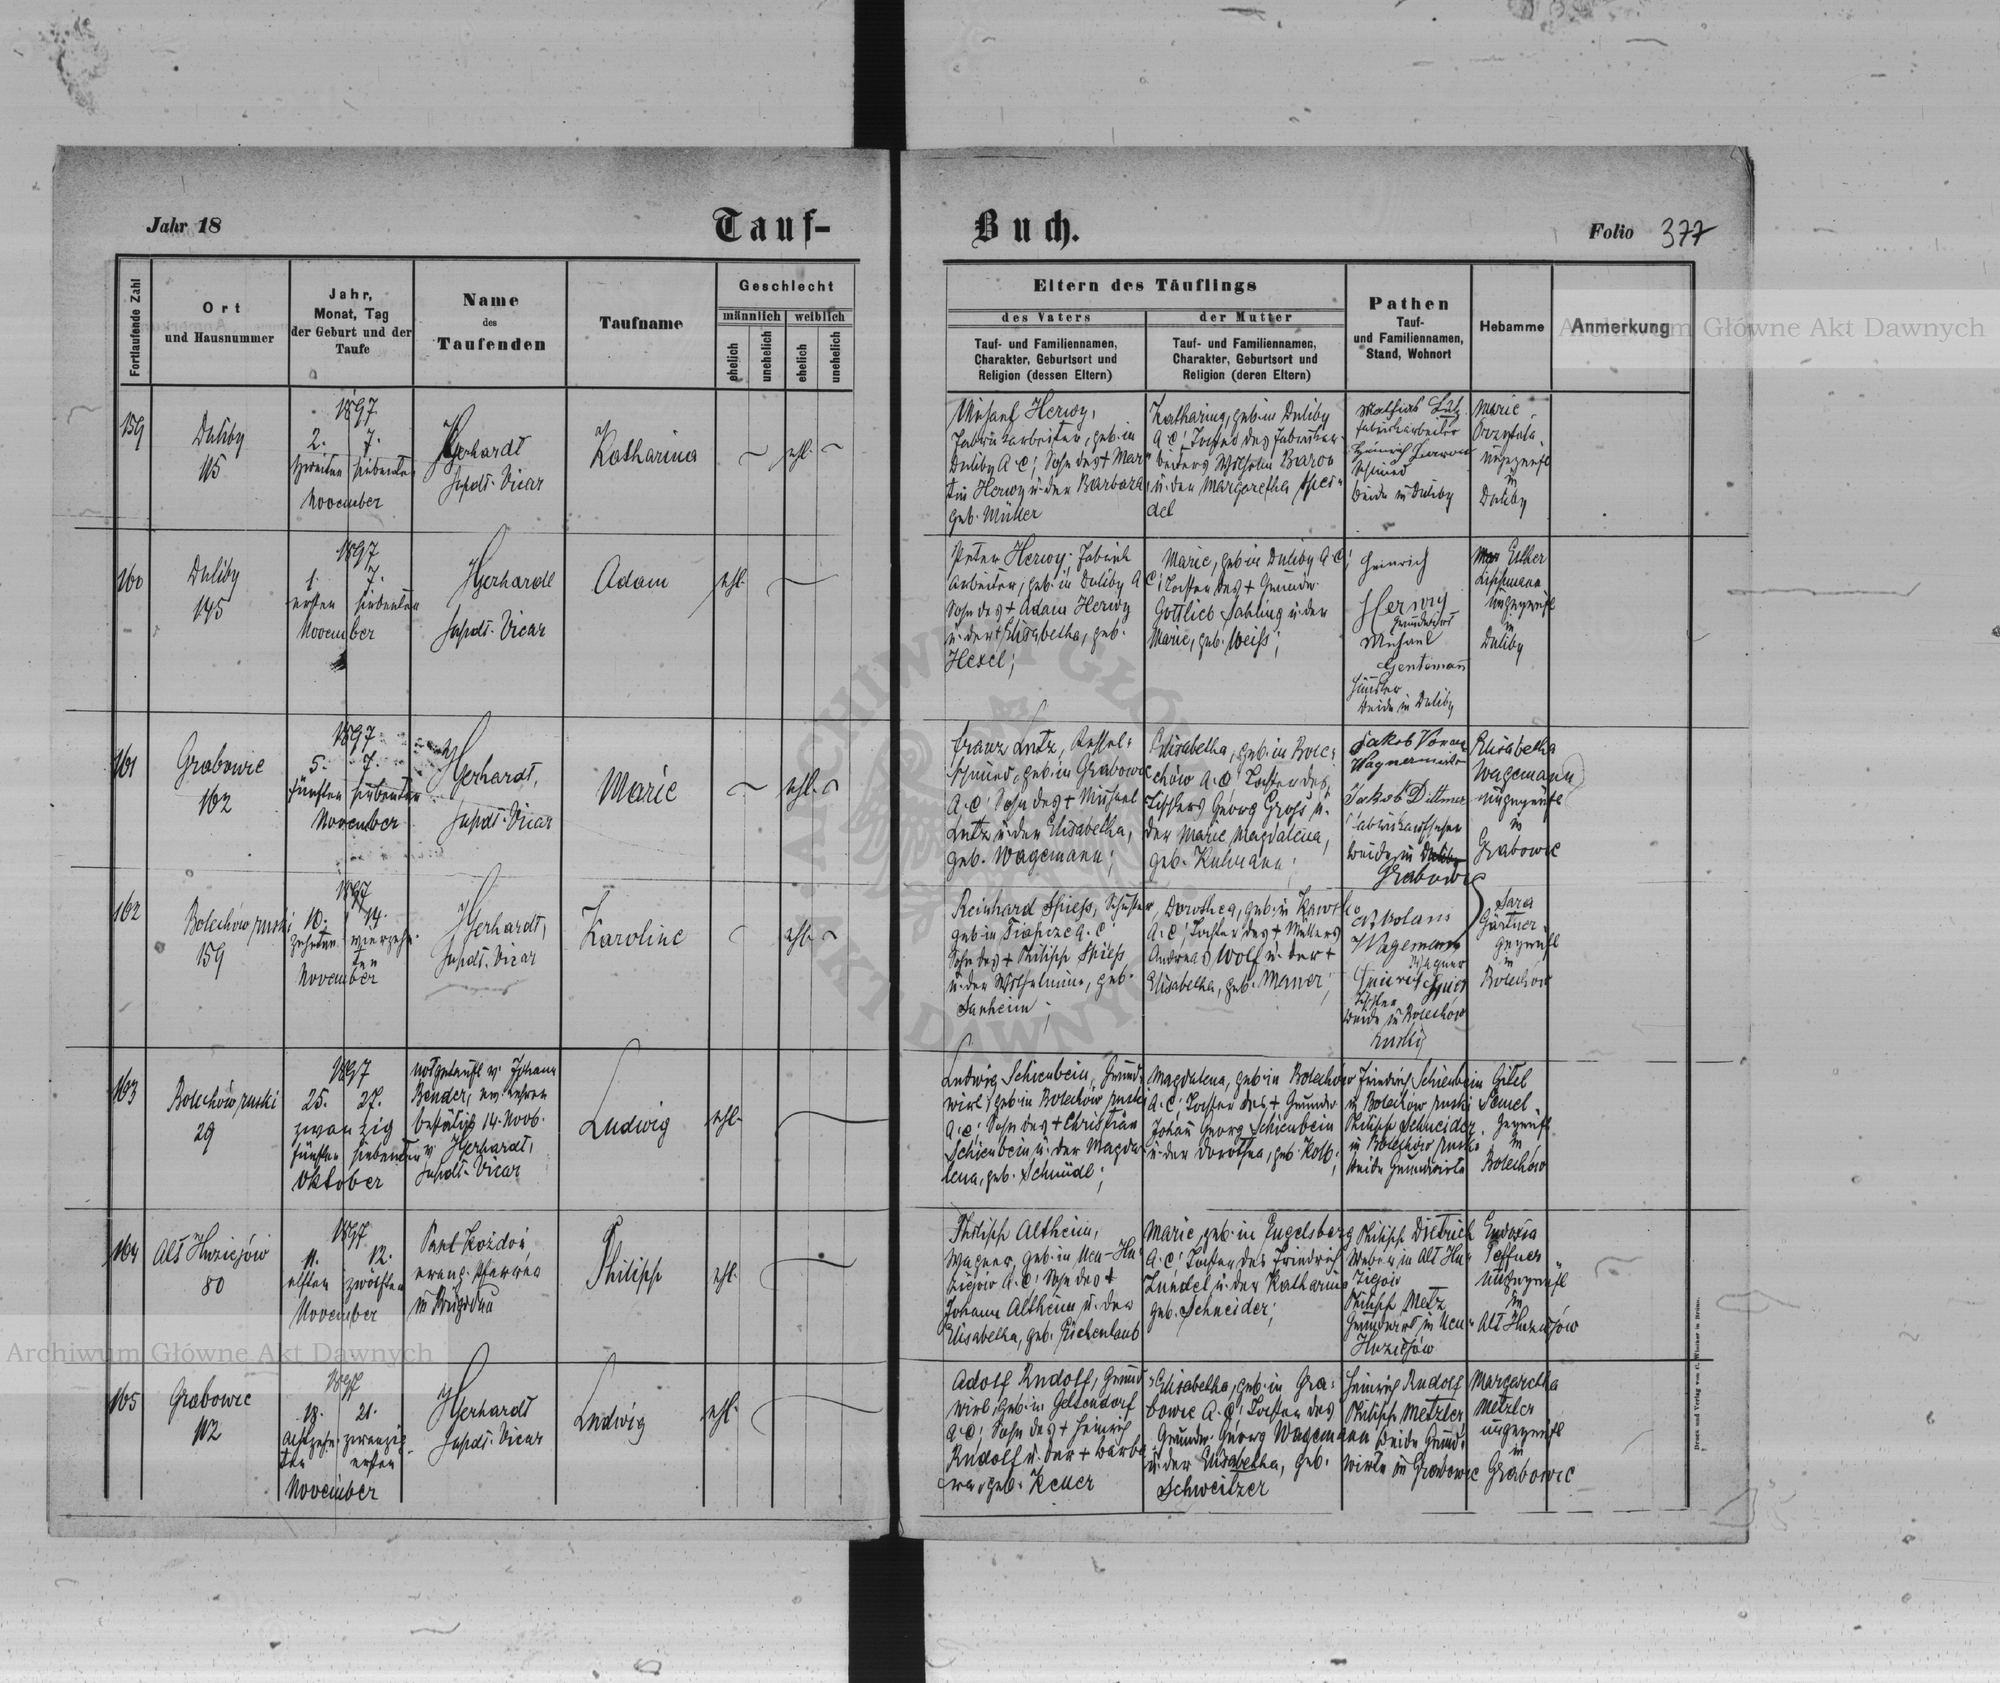 Jahr 18
Tauf-
Buch.
Folio 377
Fortlaufende Zahl
Ort
und Hausnummer
Jahr,
Monat, Tag
der Geburt und der
Taufe
Name
des
Taufenden
Taufname
Geschlecht
männlich
weiblich
ehelich
unehelich
ehelich
unehelich
Eltern des Täuflings
des Vaters
Tauf- und Familiennamen,
Charakter, Geburtsort und
Religion (dessen Eltern)
der Mutter
Tauf- und Familiennamen,
Charakter, Geburtsort und
Religion (deren Eltern)
Pathen
Tauf-
und Familiennamen,
Stand, Wohnort
Hebamme
Anmerkung
159
Duliby
115
1897
2. 7.
zweiten siebenten
November
Gerhardt
Supdt. Vicar
Katharina
ehl.
Michael Herwy,
Fabriksarbeiter, geb. in
Duliby A.C; Sohn des + Mar-
tin Herwy u. der Barbara
geb. Müller
Katharina, geb. in Duliby
A.C; Tochter des Fabriksar-
beiters Wilhelm Baron
u. der Margaretha
Mathias Lutz
Fabriksarbeiter
Heinrich
Schmied
beide in Duliby
Marie
ungeprüft
in
Duliby
160
Duliby
145
1897
1. 7.
ersten siebenten
November
Gerhardt
Supdt. Vicar
Adam
ehl.
Peter Herwy, Fabrik
arbeiter, geb. in Duliby A
Sohn des + Adam Herwy
u. der + Elisabetha, geb.
Hexel;
Marie, geb. in Duliby A.C;
Tochter des + Grundw.
Gottlieb Sahling u. der
Marie, geb. Weiss;
Heinrich
Herwy
Grundwirt
Michael
Gentemann
beide in Duliby
Esther
Lippmann
ungeprüft
in
Duliby
161
Grabowie
162
1897
5. 7.
fünften siebenten
November
Gerhardt,
Supdt. Vicar
Marie
ehl.
Franz Lutz, Kessel-
schmied, geb. in Grabowie
A.C; Sohn des + Michael
Lutz u. der Elisabetha,
geb. Wagemann;
Elisabetha, geb. in Bole-
chów A.C; Tochter des
Tischlers Georg Gross u.
der Marie Magdalena,
geb. Kulmann;
Jakob
Wagnermeister
Jakob Dittmer
Fabriksaufseher
beide in
Grabowie
Elisabetha
Wagemann
ungeprüft
in
Grabowie
162
Bolechów ruski
159
1897
10. 14.
zehnten vierzehn-
ten
November
Gerhardt,
Supdt. Vicar
Karoline
ehl.
Reinhard Spiess, Schuster
geb. in A.C;
Sohn des + Philipp Spiess
u. der Wilhelmine, geb.
Sanheim;
Dorothea, geb. in
A.C; Tochter des + Müllers
Andreas Wolf u. der +
Elisabetha, geb. Manner;
Nikolaus
Wagemann
Wagner
Heinrich
Tischler
beide in Bolechów
ruski
Sara
Gärtner
geprüft
in
Bolechów
163
Bolechów ruski
29
1897
25. 27.
zwanzig
fünften siebenten
Oktober
notgetauft v. Johann
Bender, em. Lehrer
bestätigt 14. Novb.
v. Gerhardt,
Supdt. Vicar
Ludwig
ehl.
Ludwig Schienbein, Grund-
wirt, geb. in Bolechów ruski
A.C; Sohn des + Christian
Schienbein u. der Magda-
lena, geb. Schmidt;
Magdalena, geb. in Bolechów
A.C; Tochter des + Grundw.
Johann Georg Schienbein
u. der Dorothea, geb. Kolb;
Friedrich Schienbein
in Bolechów ruski
Philipp Schneider
in Bolechów ruski
beide Grundwirte
Gitel
Semel
geprüft
in
Bolechów
164
Alt Huziejów
80
1897
11. 12.
elften zwölften
November
Paul Koždoň,
evang. Pfarrer
in Brigidau
Philipp
ehl.
Philipp Altheim,
Wagner, geb. in Neu-Hu-
ziejów A.C; Sohn des +
Johann Altheim u. der
Elisabetha, geb. Küchenlaub
Marie, geb. in Engelsberg
A.C; Tochter des Friedrich
Zündel u. der Katharina
geb. Schneider;
Philipp Dietrich
Weber in Alt Hu-
ziejów
Philipp Metz
Grundwirt in Neu-
Huziejów
Eudoxia
Peffner
ungeprüft
in
Alt Huziejów
165
Grabowie
112
1897
18. 21.
achtzehn- zwanzig-
ten ersten
November
Gerhardt
Supdt. Vicar
Ludwig
ehl.
Adolf Rudolf, Grund-
wirt, geb. in Gelsendorf
A.C; Sohn des + Heinrich
Rudolf u. der + Barba-
ra, geb. Keuer
Elisabetha, geb. in Gra-
bowie A.C; Tochter des
Grundw. Georg Wagemann
u. der Elisabetha, geb.
Schweitzer
Heinrich Rudolf
Philipp Metzler
beide Grund-
wirte in Grabowie
Margaretha
Metzler
ungeprüft
in
Grabowie
Archiwum Główne Akt Dawnych
Archiwum Główne Akt Dawnych
ARCHIWUM GŁÓWNE AKT DAWNYCH